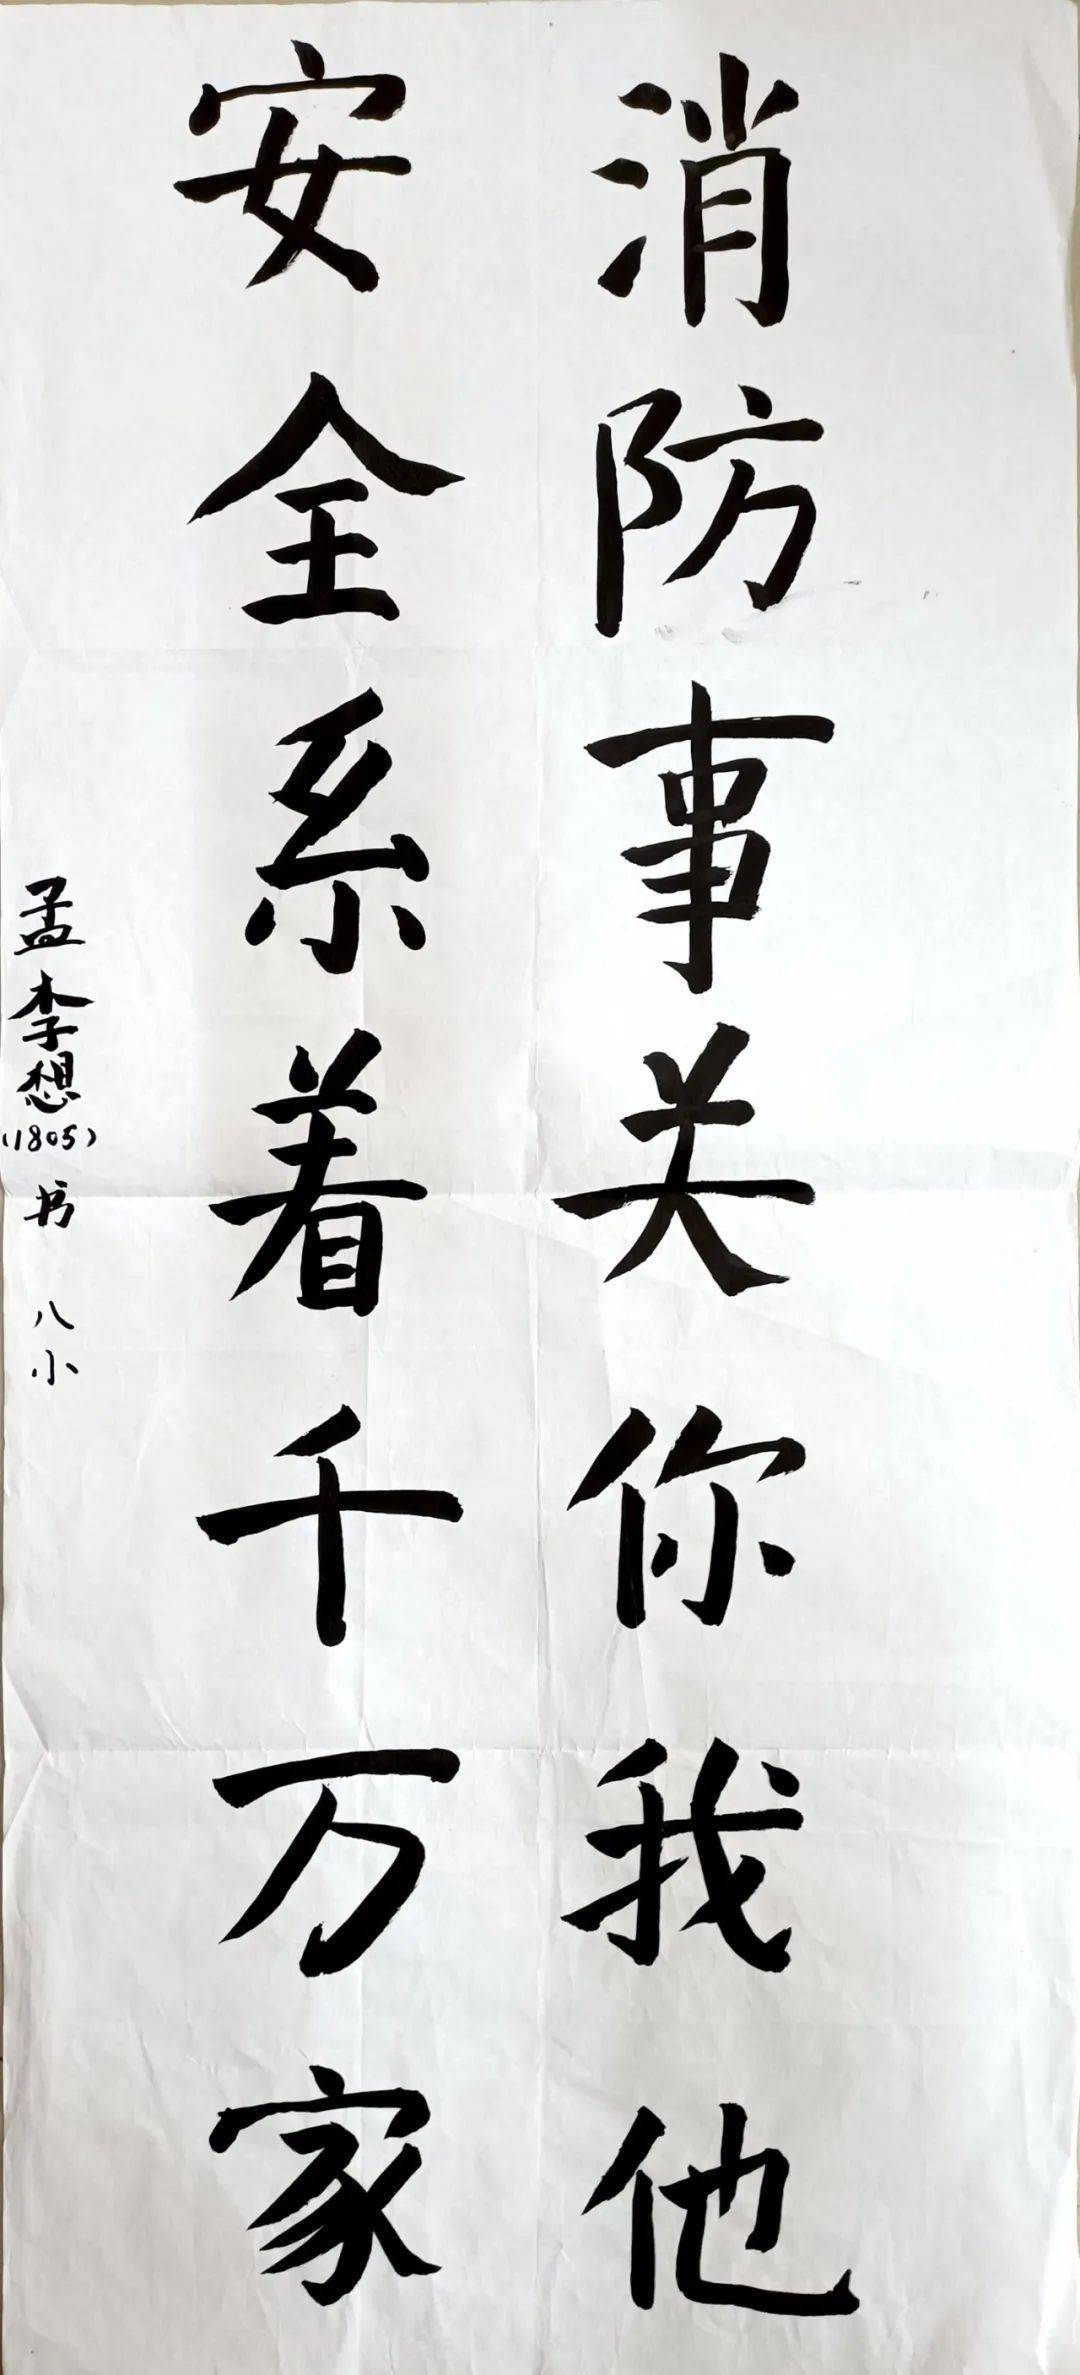 消防事关你我他
安全系着千万家
孟李想(1805)书 八小